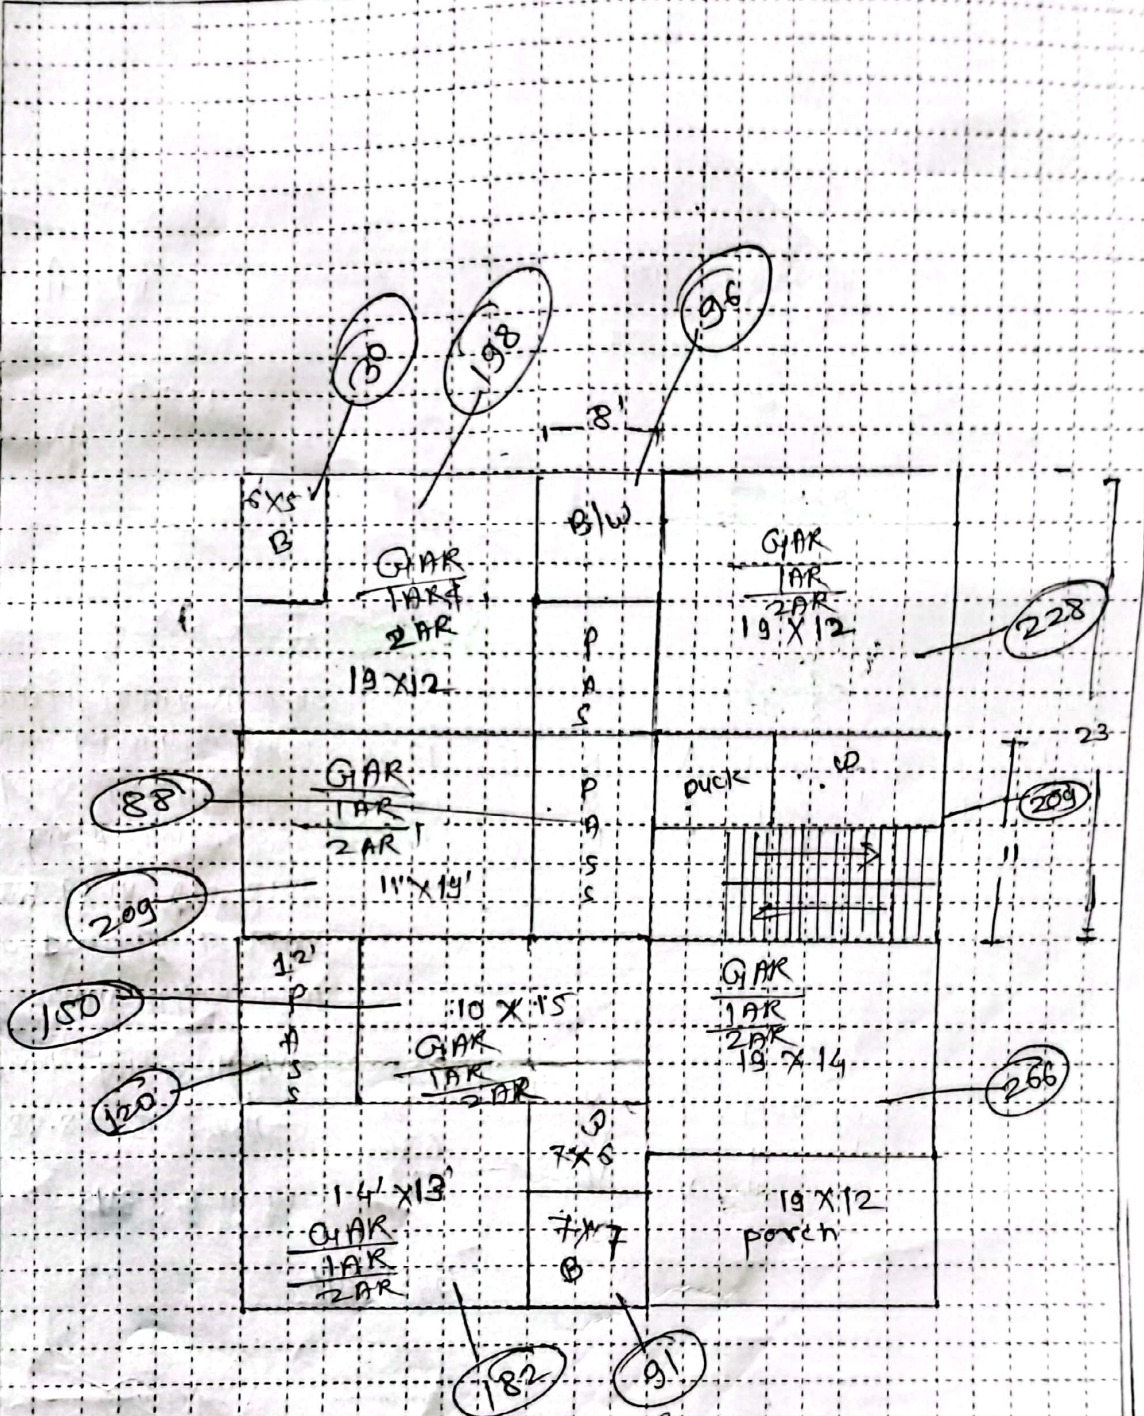 30
198
96
8'
6'X5'
B
GAR
1AR
2AR
19 X12
B/W
P
A
S
GAR
1AR
2AR
19 X 12
228
23
88
GAR
1AR
2AR
11' X 19'
209
P
A
S
S
DUCK
209
11
12'
P
A
S
S
150
120
10 X 15
GAR
1AR
2AR
GAR
1AR
2AR
19 X 14
266
7X6
14' X13'
GAR
1AR
2AR
7X7
B
19 X 12
porch
182
91